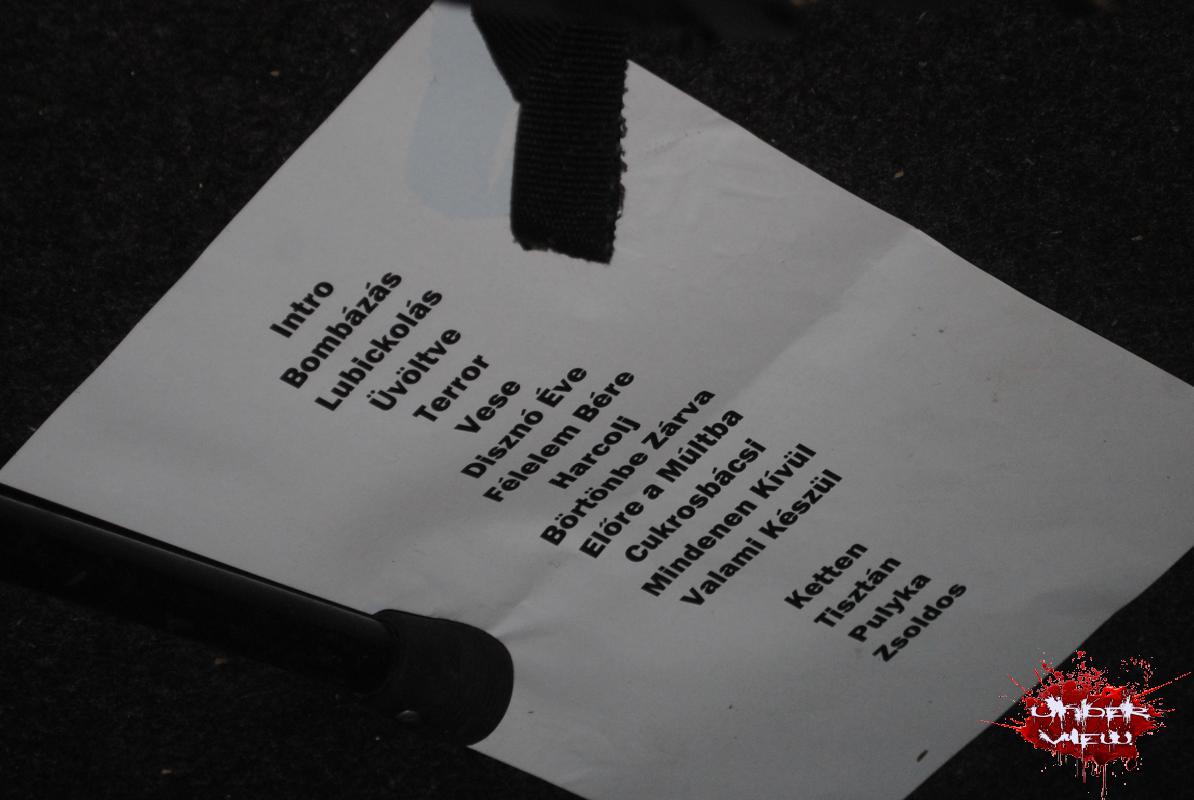 Intro
Bombázás
Lubickolás
Üvöltve
Terror
Vese
Disznó Éve
Félelem Bére
Harcolj
Börtönbe Zárva
Előre a Múltba
Cukrosbácsi
Mindenen Kívül
Valami Készül
Ketten
Tisztán
Pulyka
Zsoldos
UNDER
VIEW